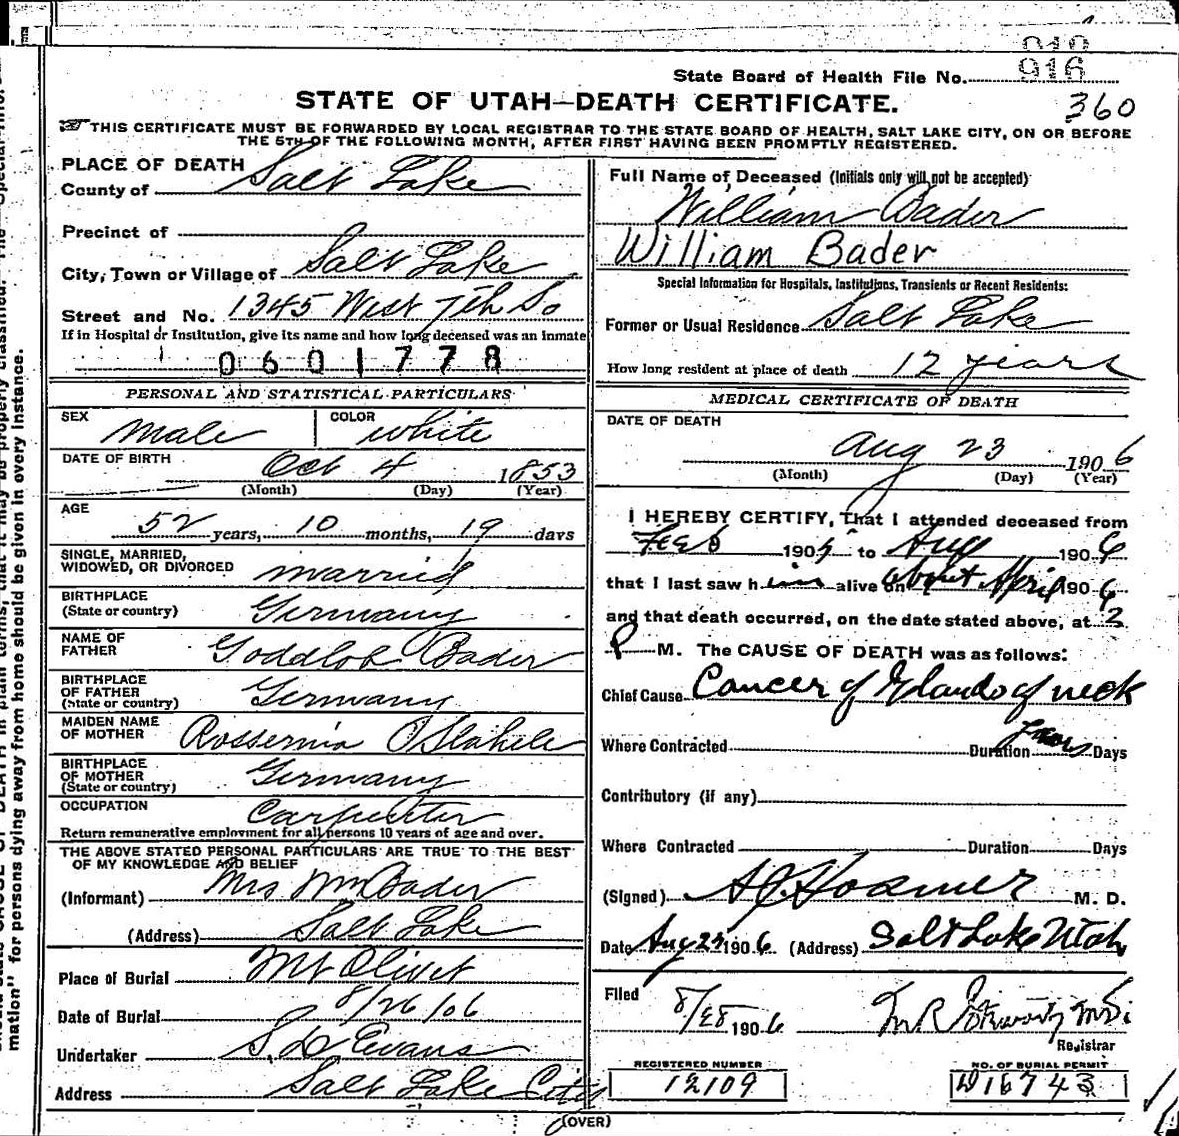 910
State Board of Health File No. 916
STATE OF UTAH—DEATH CERTIFICATE.
360
THIS CERTIFICATE MUST BE FORWARDED BY LOCAL REGISTRAR TO THE STATE BOARD OF HEALTH, SALT LAKE CITY, ON OR BEFORE
THE 5TH OF THE FOLLOWING MONTH, AFTER FIRST HAVING BEEN PROMPTLY REGISTERED.
PLACE OF DEATH
County of Salt Lake
Precinct of
City, Town or Village of Salt Lake
Street and No. 1345 West 7th So
If in Hospital or Institution, give its name and how long deceased was an inmate
0601778
PERSONAL AND STATISTICAL PARTICULARS
SEX Male COLOR White
DATE OF BIRTH Oct 4 1853
(Month) (Day) (Year)
AGE
52 years, 10 months, 19 days
SINGLE, MARRIED,
WIDOWED, OR DIVORCED married
BIRTHPLACE
(State or country) Germany
NAME OF
FATHER Goddlob Bader
BIRTHPLACE
OF FATHER
(State or country) Germany
MAIDEN NAME
OF MOTHER
BIRTHPLACE
OF MOTHER
(State or country) Germany
OCCUPATION Carpenter
Return remunerative employment for all persons 10 years of age and over.
THE ABOVE STATED PERSONAL PARTICULARS ARE TRUE TO THE BEST
OF MY KNOWLEDGE AND BELIEF
(Informant) Mrs Wm Bader
(Address) Salt Lake
Place of Burial Mt Olivet
Date of Burial 8/26/06
Undertaker S. D. Evans
Address Salt Lake City
Full Name of Deceased (Initials only will not be accepted)
William Bader
William Bader
Special Information for Hospitals, Institutions, Transients or Recent Residents:
Former or Usual Residence Salt Lake
How long resident at place of death 12 years
MEDICAL CERTIFICATE OF DEATH
DATE OF DEATH
Aug 23 1906
(Month) (Day) (Year)
I HEREBY CERTIFY, That I attended deceased from
Feb 1905 to Aug 1906
that I last saw him alive on about April 1906
and that death occurred, on the date stated above, at 2
P M. The CAUSE OF DEATH was as follows:
Chief Cause Cancer of Glands of neck
Where Contracted Duration Days
Contributory (if any)
Where Contracted Duration Days
(Signed) M. D.
Date Aug 25 1906 (Address) Salt Lake Utah
Filed
8/28 1906
Registrar
REGISTERED NUMBER
12109
NO. OF BURIAL PERMIT
W16743
(OVER)
mation" for persons dying away from home should be given in every instance.